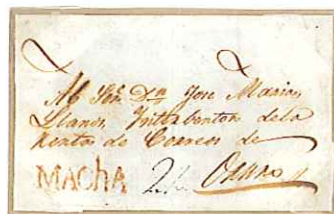 Al Señ. Dn Jose Maria
Llanos, Interbentor dela
Renta de Correos de
MACHA 2½ Oruro